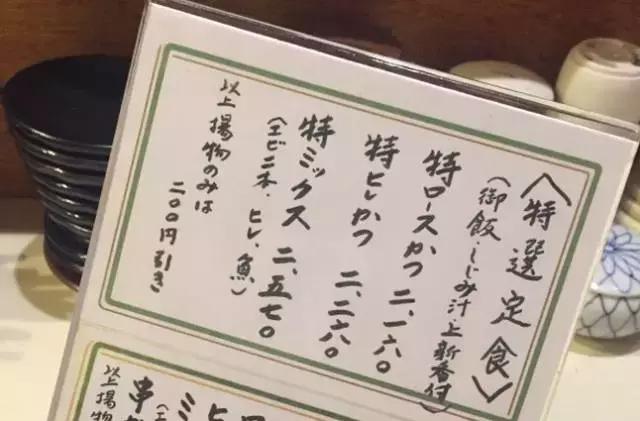 〈特選定食〉
(御飯・しじみ汁上新香付)
特ロースかつ 二、一六〇
特ヒレかつ 二、二六〇
特ミックス 二、五七〇
(エビ二本・ヒレ・魚)
以上揚物のみは
二〇〇円引き
ヒ
ミ
串
以上揚物